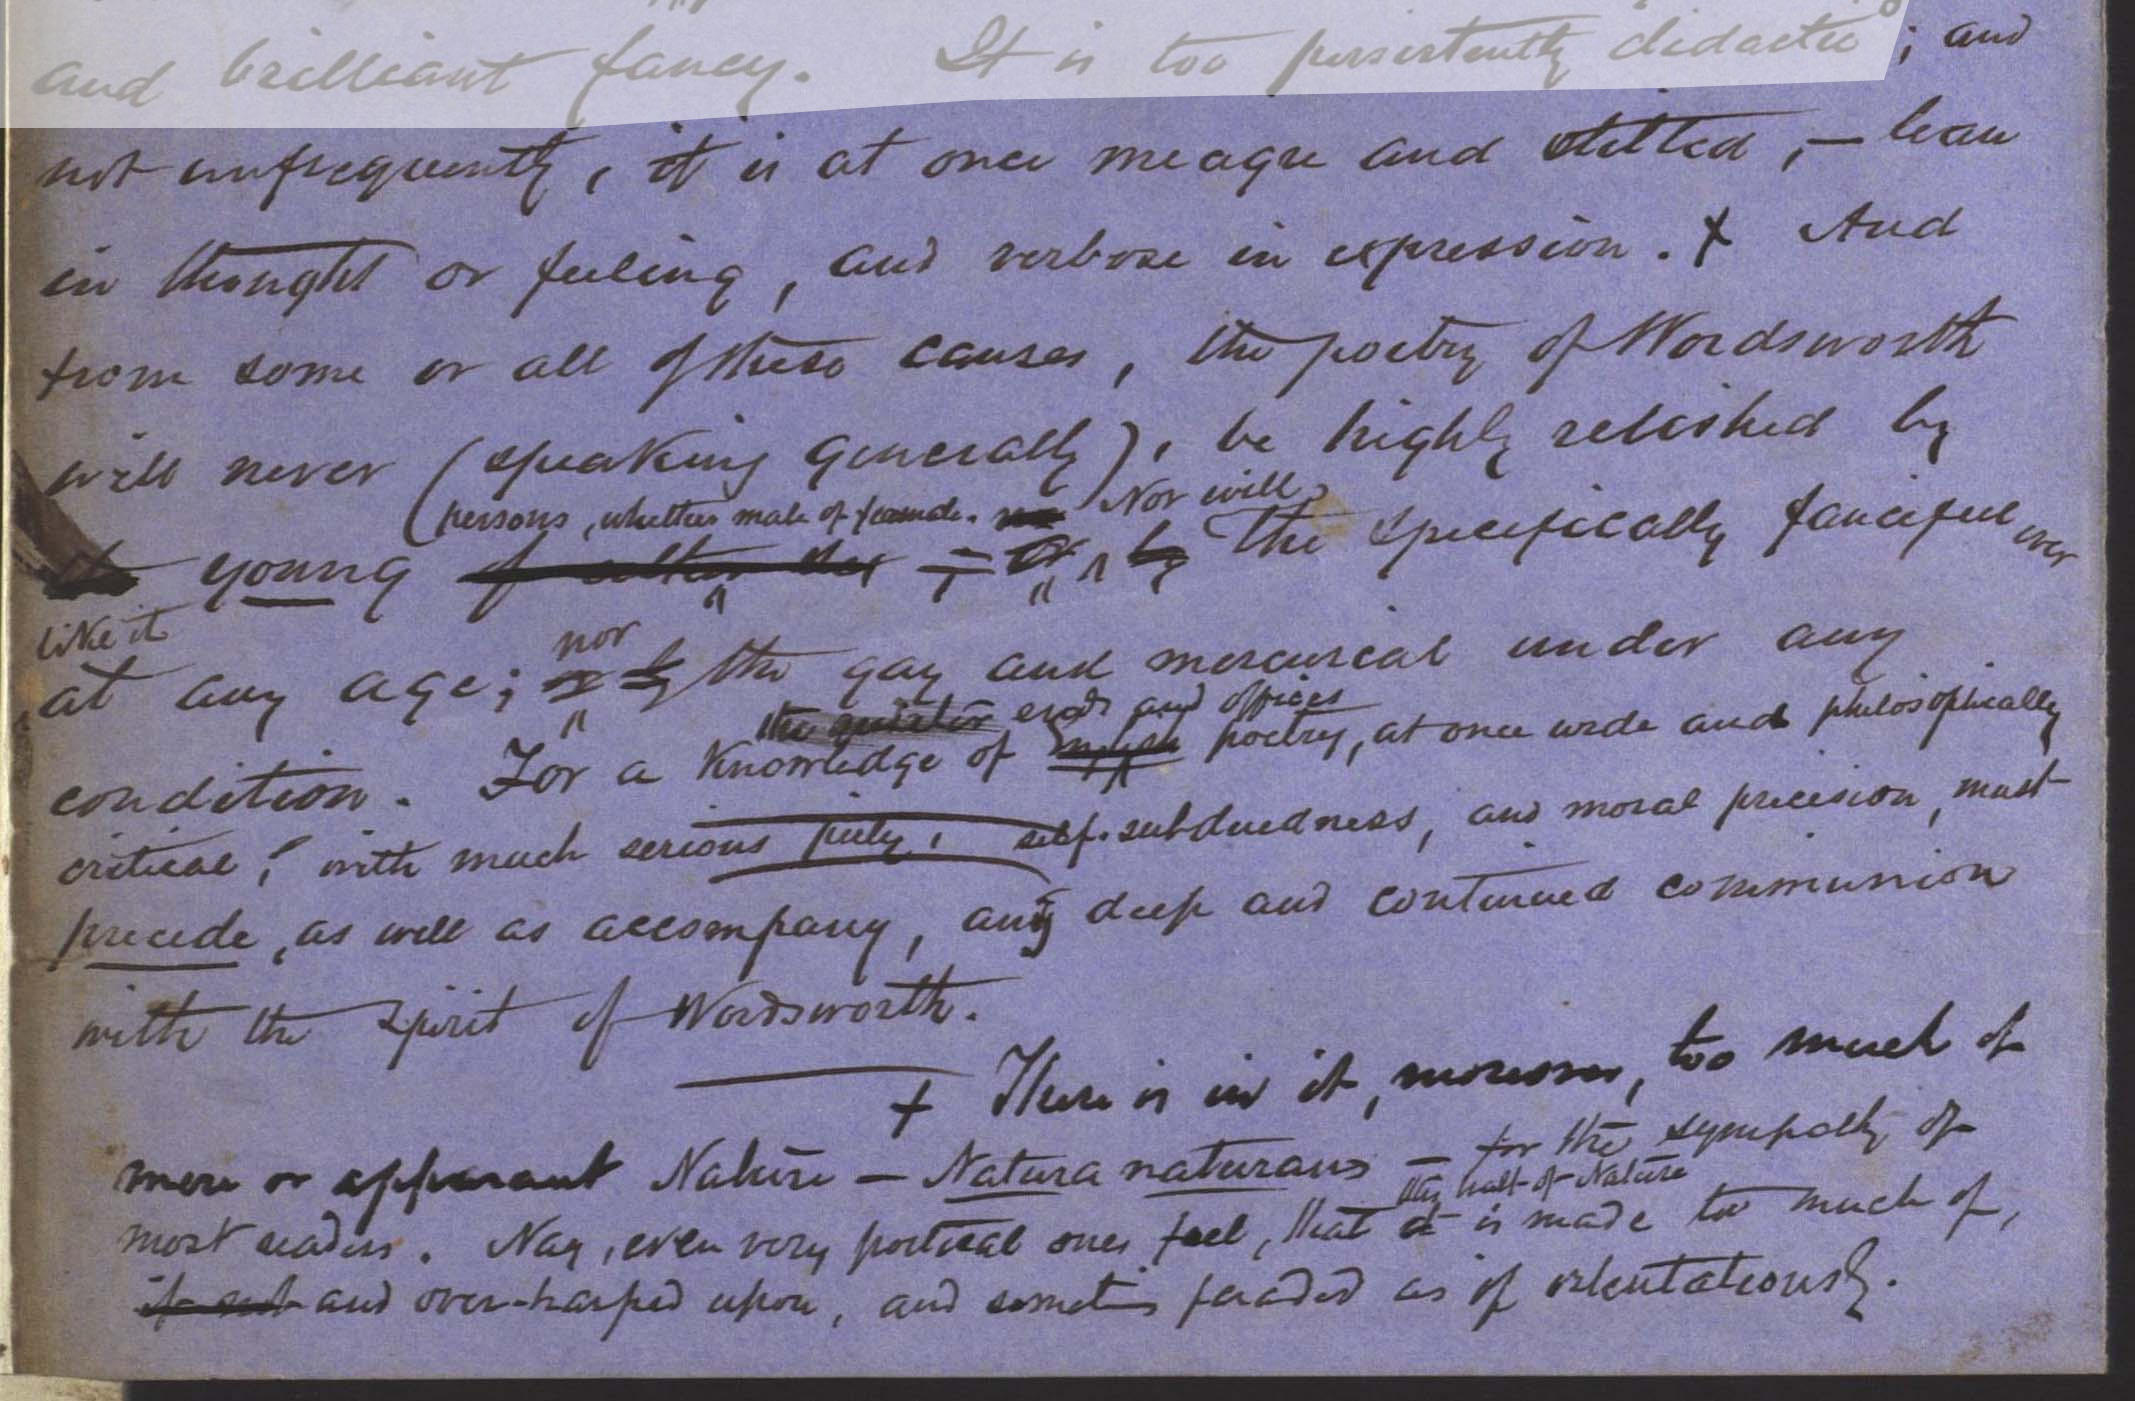 and brilliant fancy. It is too persistently didactic; and
not unfrequently, it is at once meagre and stilted, – lean
in thought or feeling, and verbose in expression. + And
from some or all of these causes, the poetry of Wordsworth
will never (speaking generally), be highly relished by
persons, whether male or female. Nor will
young the specifically fanciful ever
like it
at any age; nor the gay and mercurial under any
the quieter ends and offices
condition. For a knowledge of poetry, at once wide and philosophically
critical, with much serious piety, self-subduedness, and moral precision, must
precede, as well as accompany, any deep and continued communion
with the Spirit of Wordsworth.
+ There is in it, moreover, too much of
mere or apparent Nature – Natura naturans – for the sympathy of
this half-of Nature
most readers. Nay, even very poetical ones feel, that it is made too much of,
and over-harped upon, and sometimes paraded as if ostentatiously.